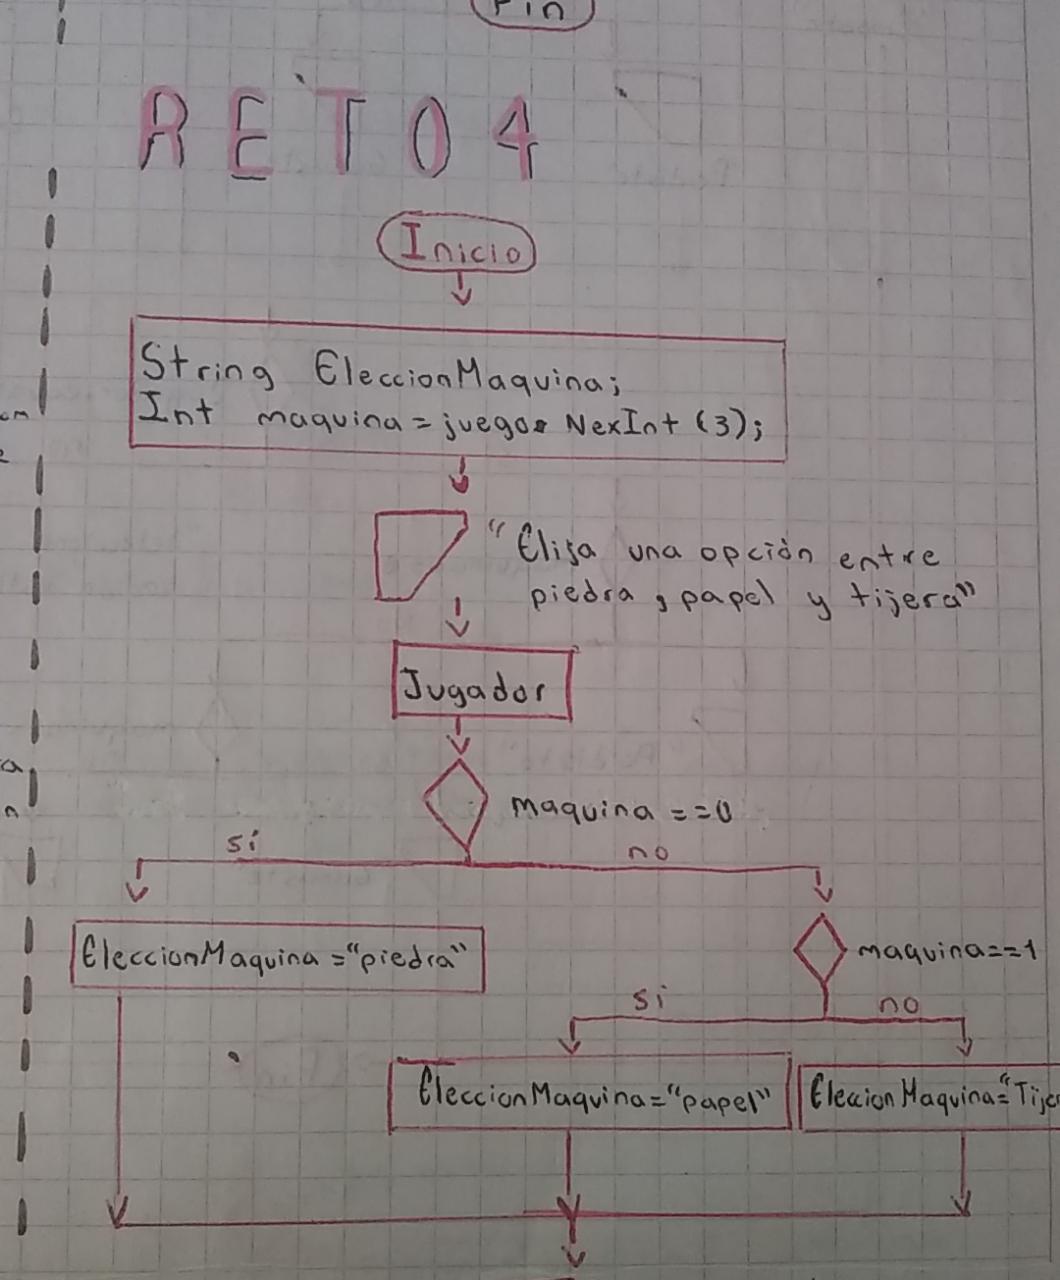 Fin
RETO4
Inicio
String EleccionMaquina;
Int maquina = juego. NexInt (3);
"Elija una opción entre
piedra, papel y tijera"
Jugador
maquina ==0
si
no
EleccionMaquina ="piedra"
maquina==1
si
no
EleccionMaquina="papel"
EleccionMaquina="Tije